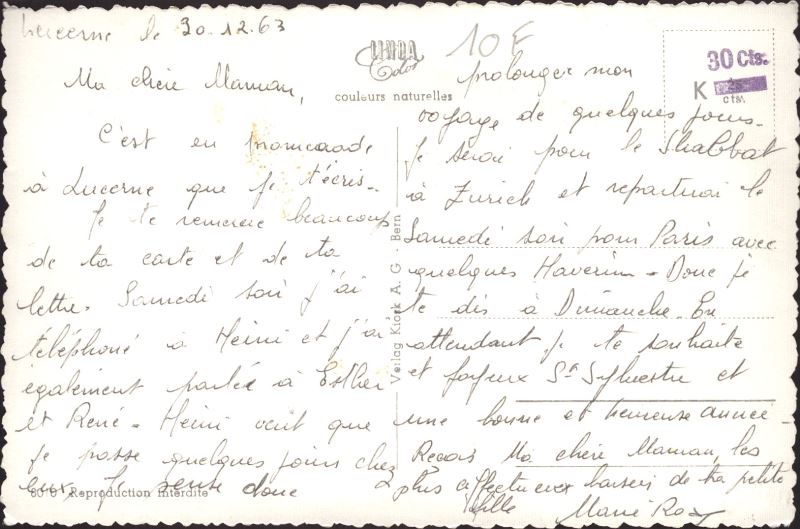 Lucerne le 30.12.63
Ma chère Maman,
C'est en promenade
à Lucerne que je t'écris-
Je te remercie beaucoup
de ta carte et de ta
lettre. Samedi soir j'ai
téléphoné à Heini et j'ai
également parlé à Esther
et René - Heini veut que
je passe quelques jours chez
eux je pense donc
Reproduction interdite
LINDA
Color
couleurs naturelles
Verlag Kiosk A. G. - Bern
10 F
30 Cts.
K
cts.
prolonger mon
voyage de quelques jours-
Je serai pour le Shabbat
à Zurich et repartirai le
Samedi soir pour Paris avec
quelques Haverim - Donc je
te dis à Dimanche. En
attendant je te souhaite
et joyeux St Sylvestre et
une bonne et heureuse année-
Reçois Ma chère Maman, les
plus affectueux baisers de ta petite
fille